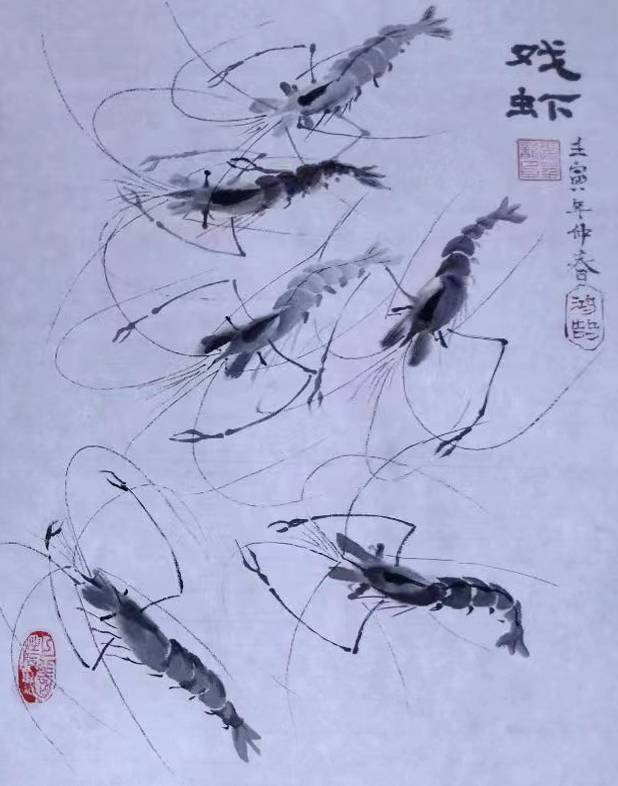 戏虾
壬寅年仲春
鸿鹄